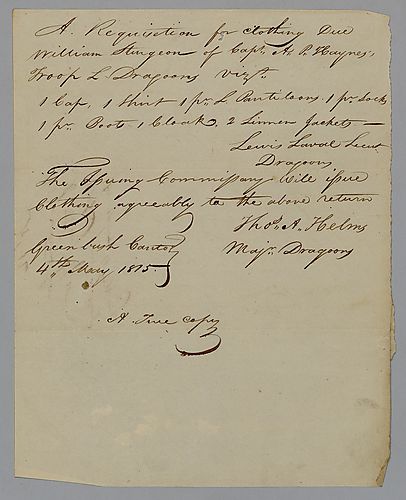 A Requisition for clothing Due
William Sturgeon of Capt. A. P. Haynes,
Troop L. Dragoons vizt.
1 Cap, 1 Shirt 1 pr. L. Pantiloons, 1 pr Socks
1 pr. Boots, 1 Cloak, 2 Linnen Jackets —
Lewis Laval Lieut
Dragoons
The Issuing Commissary Will issue
Clothing agreeably to the above return
Thos. A. Helms
Greenbush Canto
Majr. Dragoons
4th May 1815
A True Copy